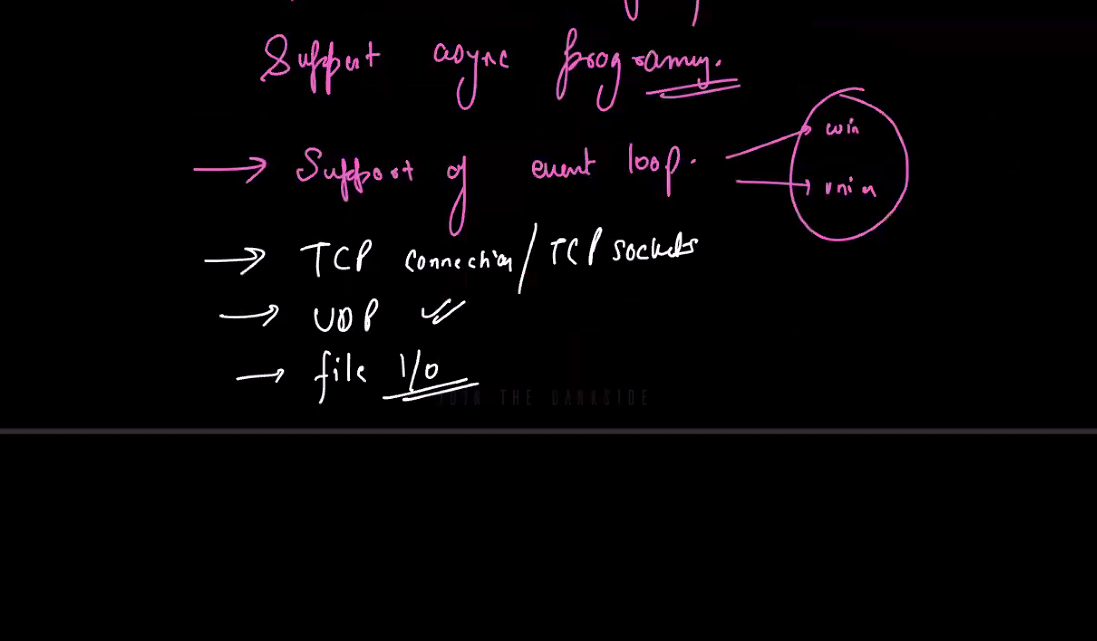 Support async programing.
→ Support of event loop.
win
unix
→ TCP connection / TCP sockets
→ UDP ✓✓
→ file I/O
JOIN THE DARKSIDE